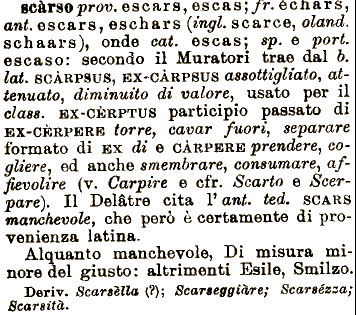 scàrso prov. escars, escas; fr. échars,
ant. escars, eschars (ingl. scarce, oland.
schaars), onde cat. escas; sp. e port.
escaso: secondo il Muratori trae dal b.
lat. SCÀRPSUS, EX-CÀRPSUS assottigliato, at-
tenuato, diminuito di valore, usato per il
class. EX-CÈRPTUS participio passato di
EX-CÈRPERE torre, cavar fuori, separare
formato di EX di e CÀRPERE prendere, co-
gliere, ed anche smembrare, consumare, af-
fievolire (v. Carpire e cfr. Scarto e Scer-
pare). Il Delâtre cita l'ant. ted. SCARS
manchevole, che però è certamente di pro-
venienza latina.
Alquanto manchevole, Di misura mi-
nore del giusto: altrimenti Esile, Smilzo.
Deriv. Scarsèlla (?); Scarseggiàre; Scarsézza;
Scarsità.